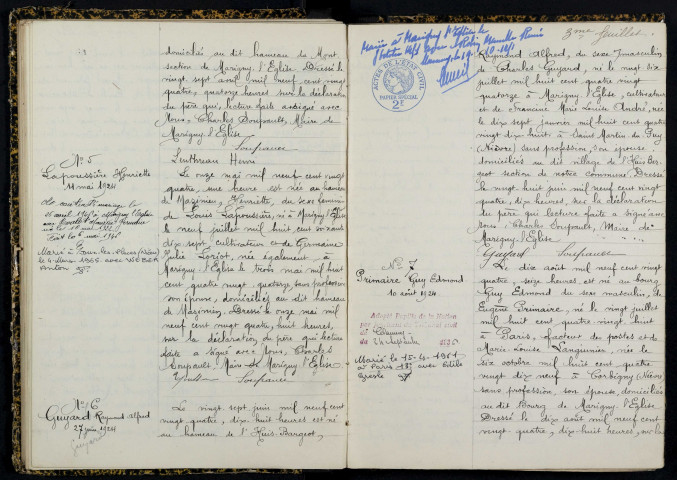 domicilié au dit hameau de Mont
section de Marigny l'Eglise. Dressé le
vingt sept avril mil neuf cent vingt
quatre, quatorze heures sur la déclaration
du père qui, lecture faite a signé avec
Nous, Charles Soupault, Maire de
Marigny l'Eglise
Linthereau Henri
N° 5
Lapoussière Henriette
11 mai 1924
Le onze mai mil neuf cent vingt
quatre, une heure est née au hameau
de Mazimien, Henriette, du sexe féminin
de Louis Lapoussière, né à Marigny l'Eglise
le neuf juillet mil huit cent soixante
dix sept, cultivateur et de Germaine
Julie Loriot, née également à
Marigny l'Eglise le trois mai mil huit
cent quatre vingt quatorze, sans profession
son épouse, domiciliés au dit hameau
de Mazimien. Dressé le onze mai mil
neuf cent vingt quatre, huit heures,
sur la déclaration du père qui lecture
faite a signé avec Nous, Charles
Soupault, Maire de Marigny l'Eglise
N° 6
Guyard Raymond Alfred
27 juin 1924
Guyard
Le vingt sept juin mil neuf cent
vingt quatre, dix-huit heures est né
au hameau de l'Huis-Bargeot,
3me feuillet
ACTES DE L'ETAT CIVIL
PAPIER SPECIAL
2F
Raymond Alfred, du sexe masculin
de Charles Guyard, né le vingt six
juillet mil huit cent quatre vingt
quatorze à Marigny l'Eglise, cultivateur
et de Francine Marie Louise André, née
le dix sept janvier mil huit cent quatre
vingt dix huit à Saint Martin du Puy
(Nièvre) sans profession, son épouse,
domiciliés au dit village de l'Huis Bar
geot section de notre commune. Dressé
le vingt huit juin mil neuf cent vingt
quatre, dix heures, sur la déclaration
du père qui lecture faite a signé avec
Nous, Charles Soupault, Maire de
Marigny-l'Eglise
Guyard
N° 7
Primaire Guy Edmond
10 août 1924
Le dix août mil neuf cent vingt
quatre, seize heures, est né au bourg
Guy Edmond du sexe masculin, de
Eugène Primaire, né le vingt juillet
mil huit cent quatre vingt huit
à Paris, facteur des postes et de
Marie-Louise Languinier, née le
six octobre mil huit cent quatre
vingt dix neuf à Corbigny (Nièvre)
sans profession, son épouse, domiciliés
au dit Bourg de Marigny l'Eglise
Dressé le dix août mil neuf cent
vingt-quatre, dix-huit heures, sur la
Adopté Pupille de la Nation
Marié le 15-4-1961
à Paris 18e avec